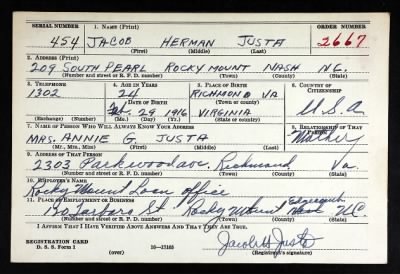 SERIAL NUMBER 1. NAME (Print) ORDER NUMBER
454 JACOB HERMAN JUSTA 2667
(First) (Middle) (Last)
2. ADDRESS (Print)
209 SOUTH PEARL ROCKY MOUNT NASH N.C.
(Number and street or R. F. D. number) (Town) (County) (State)
3. TELEPHONE 4. AGE IN YEARS 5. PLACE OF BIRTH 6. COUNTRY OF CITIZENSHIP
1302 24 RICHMOND VA
DATE OF BIRTH (Town or county)
Feb. 29 1916 VIRGINIA U.S.A
(Exchange) (Number) (Mo.) (Day) (Yr.) (State or country)
7. NAME OF PERSON WHO WILL ALWAYS KNOW YOUR ADDRESS 8. RELATIONSHIP OF THAT PERSON
MRS. ANNIE G JUSTA Mother
(Mr., Mrs., Miss) (First) (Middle) (Last)
9. ADDRESS OF THAT PERSON
2303 Parkwood ave. Richmond Va.
(Number and street or R. F. D. number) (Town) (County) (State)
10. EMPLOYER'S NAME
Rocky Mount Loan Office
11. PLACE OF EMPLOYMENT OR BUSINESS
Tarboro St. Rocky Mount Edgecomb N.C.
(Number and street or R. F. D. number) (Town) (County) (State)
I AFFIRM THAT I HAVE VERIFIED ABOVE ANSWERS AND THAT THEY ARE TRUE.
REGISTRATION CARD
D. S. S. Form 1 (over) Jacob H Justa
(Registrant's signature)